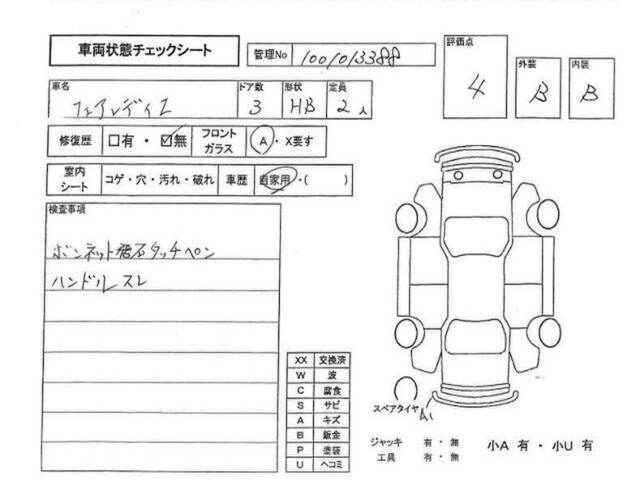 車両状態チェックシート
管理No 1001013388
評価点 4
外装 B
内装 B
車名 フェアレディZ
ドア数 3
形状 HB
定員 2人
修復歴 □有・☑無
フロントガラス A・X要す
室内シート コゲ・穴・汚れ・破れ
車歴 自家用・( )
検査事項
ボンネット飛石タッチペン
ハンドルスレ
XX 交換済
W 波
C 腐食
S サビ
A キズ
B 鈑金
P 塗装
U ヘコミ
スペアタイヤ
A1
ジャッキ 有・無
工具 有・無
小A 有・小U 有